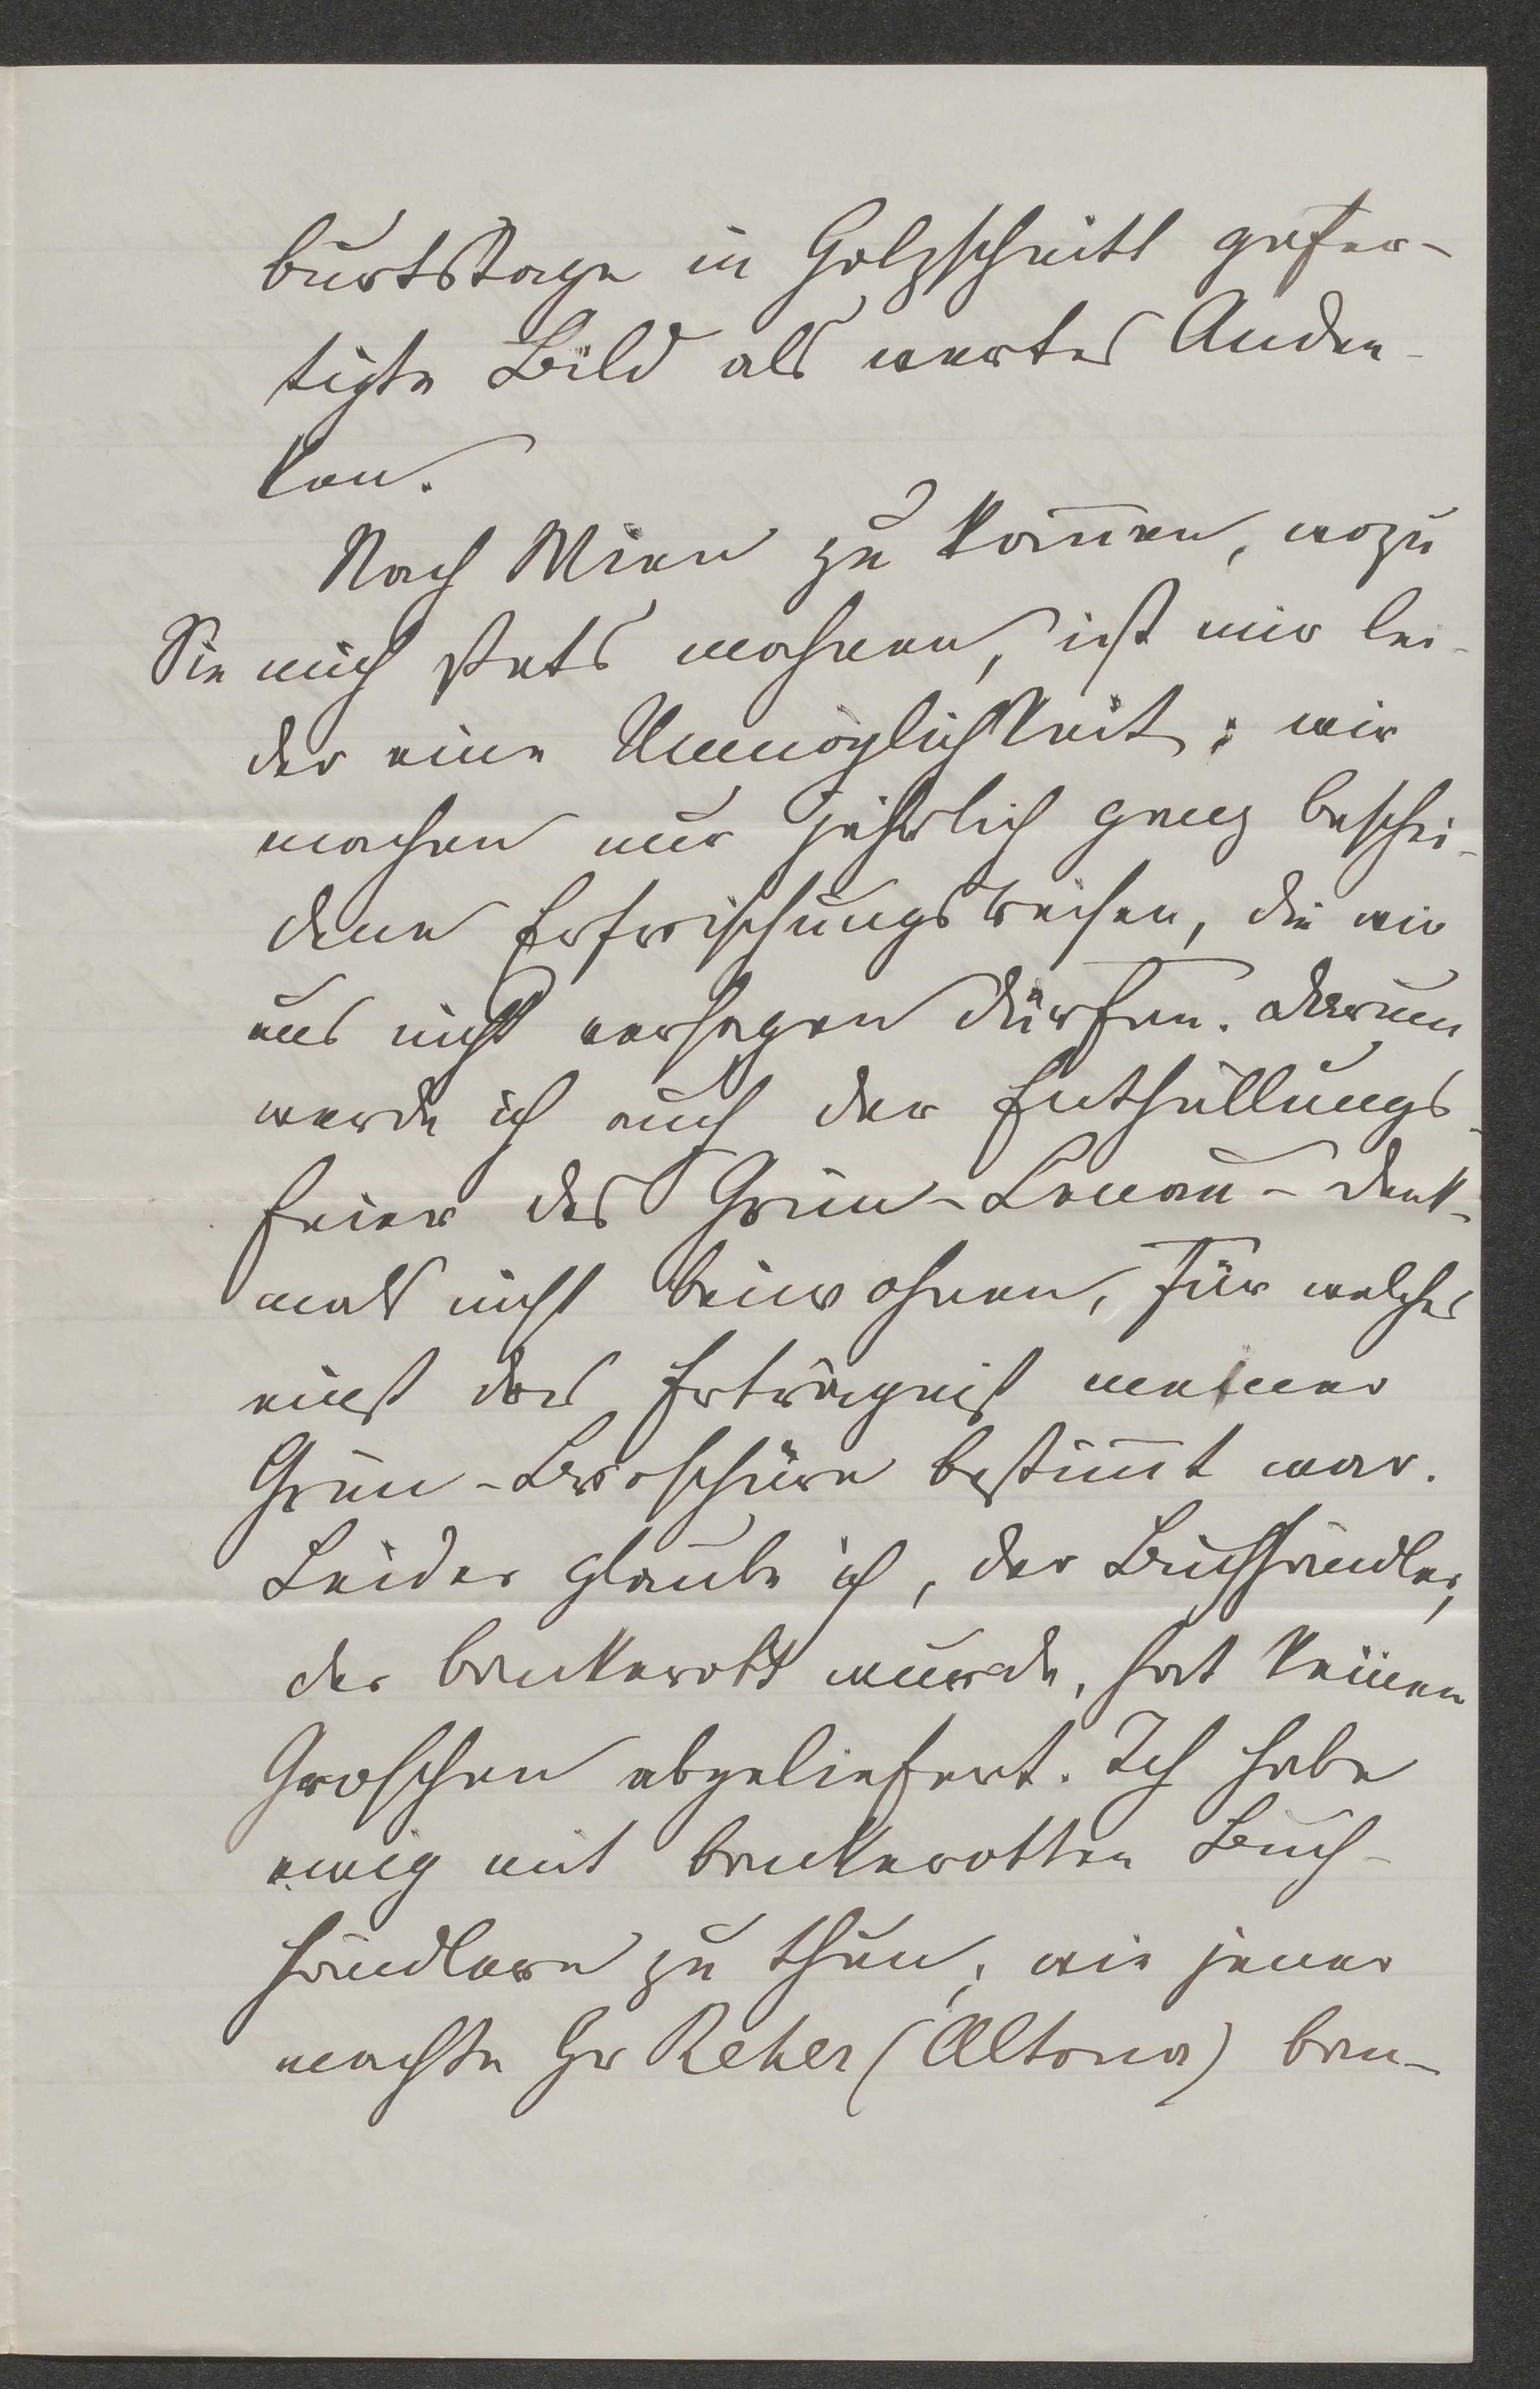 burtstage in Holzschnitt gefer-
tigte Bild als wertes Anden-
ken.
Nach Wien zu kom̄en, wozu
Sie mich stets mahnen, ist mir lei-
der eine Unmöglichkeit; wir
machen nur jährlich ganz beschei-
dene Erfrischungsreisen, die wir
uns nicht versagen dürfen. Darum
werde ich auch der Enthüllungs-
feier des Grün-Lenau-Denk-
mals nicht beiwohnen, für welches
einst das Erträgniß meiner
Grün-Broschüre bestim̄t war.
Leider glaube ich, der Buchhändler,
der bankerott wurde, hat keinen
Groschen abgeliefert. Ich habe
ewig mit bankerotten Buch-
händlern zu thun; wie jener
machte Hr Reher (Altona) ban-